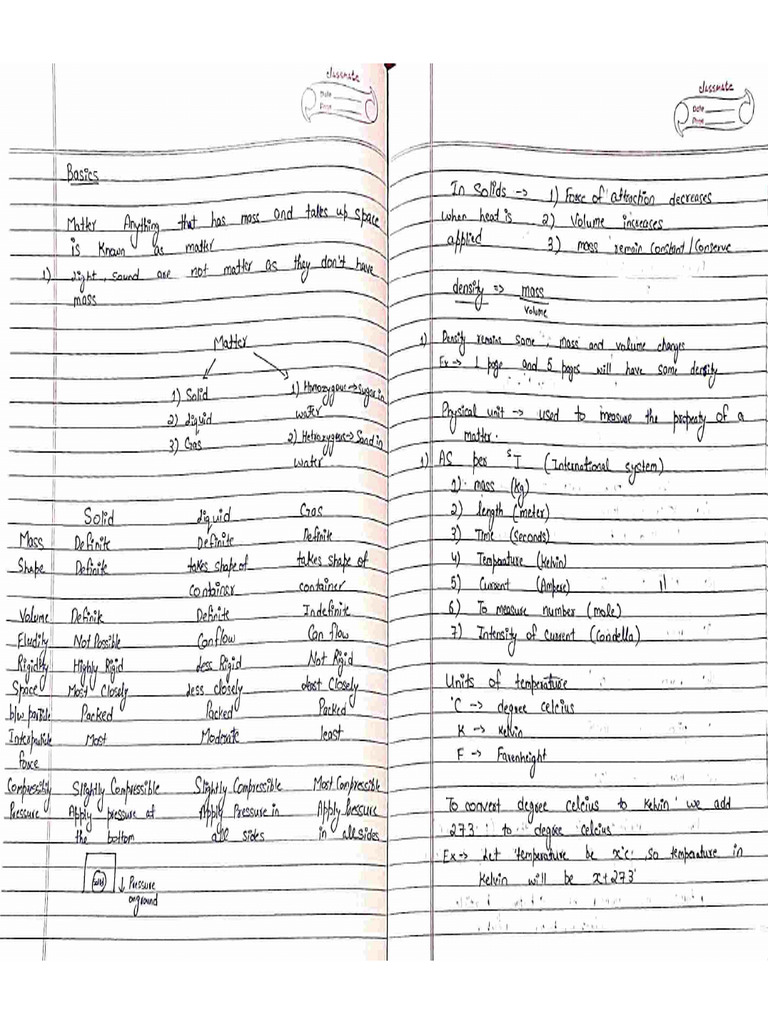 classmate
Date
Page
Basics
Matter Anything that has mass and takes up space
is known as matter
1) Light, sound are not matter as they don't have
mass
Matter
1) Solid
2) Liquid
3) Gas
1) Homozygous → Sugar in
water
2) Hetrozygous → Sand in
water
Solid Liquid Gas
Mass Definite Definite Definite
Shape Definite takes shape of takes shape of
Container container
Volume Definite Definite Indefinite
Fluidity Not Possible Can flow Can flow
Rigidity Highly Rigid Less Rigid Not Rigid
Space Most Closely Less closely Least Closely
b/w particle Packed Packed Packed
Interparticle Most Moderate least
force
Compressibility Slightly Compressible Slightly Compressible Most Compressible
Pressure Apply pressure at Apply Pressure in Apply Pressure
the bottom all sides in all sides
solid
↓ Pressure
on ground
classmate
Date
Page
In Solids → 1) Force of attraction decreases
when head is 2) Volume increases
applied 3) mass remain constant/Conserve
density => mass
volume
1) Density remains same mass and volume changes
Ex → 1 page and 5 pages will have same density
Physical unit → used to measure the property of a
matter.
1) AS per SI (International system)
1) mass (kg)
2) length (meter)
3) Time (seconds)
4) Temperature (Kelvin)
5) Current (Ampere)
6) To measure number (mole)
7) Intensity of Current (Candella)
Units of temperature
°C → degree celcius
K → Kelvin
F → Farenheight
To convert degree celcius to Kelvin we add
273 to degree celcius
Ex → Let temperature be x°c, so temperature in
Kelvin will be x+273